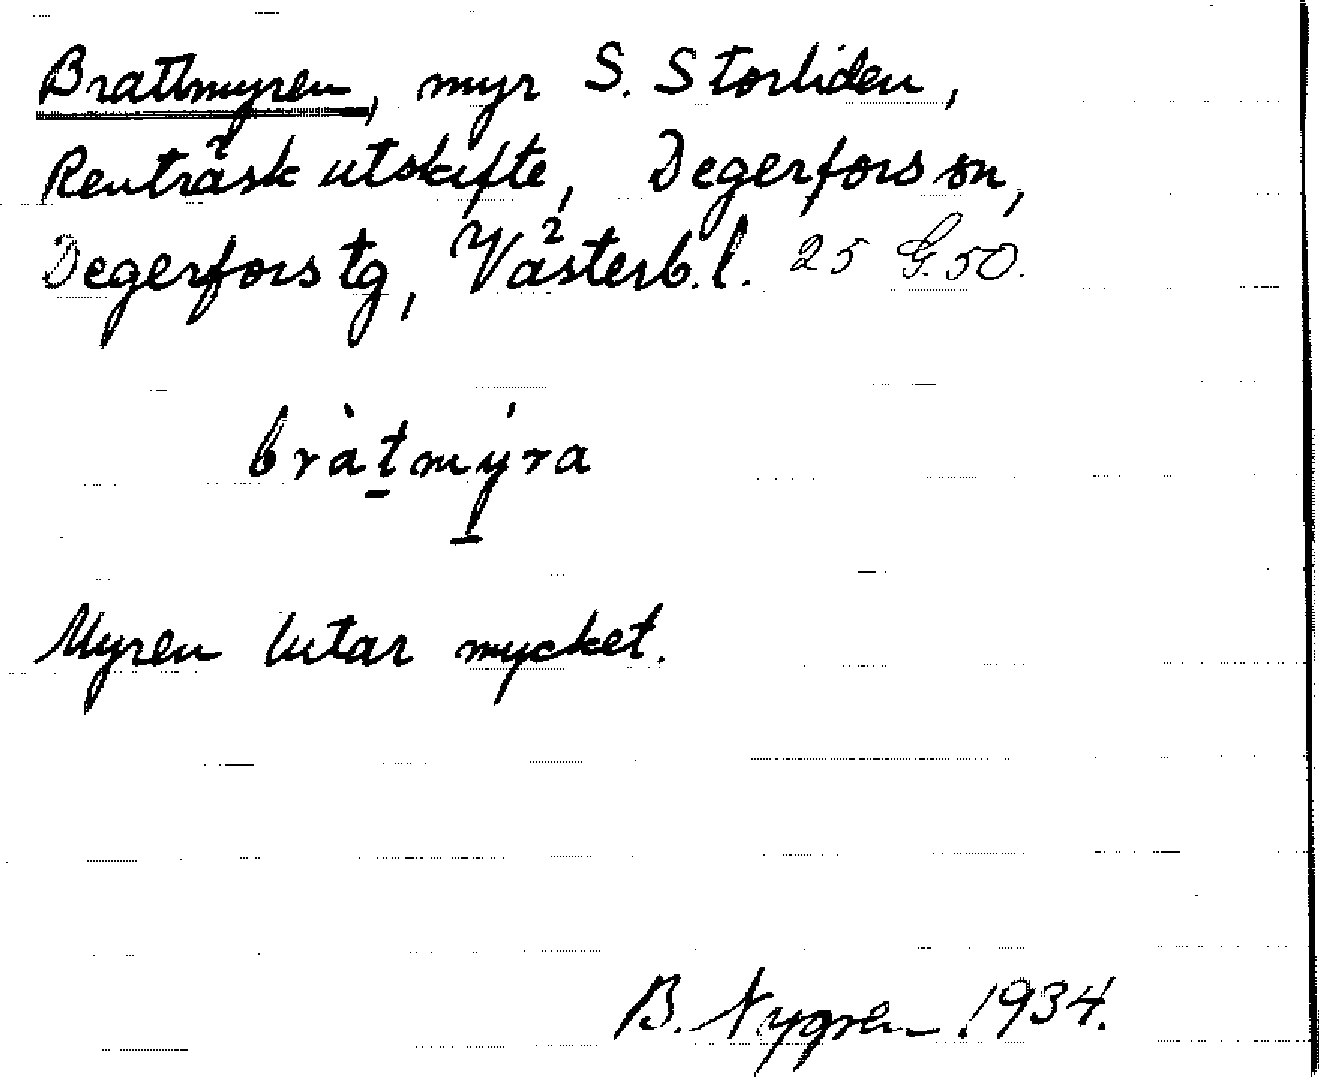 Brattmyren, myr S. Storliden,
Renträsk utskifte, Degerfors sn,
Degerfors tg, Västerb. l. 25 G. 50.
bràt̠mý̠ra
Myren lutar mycket.
B. Nygren. 1934.